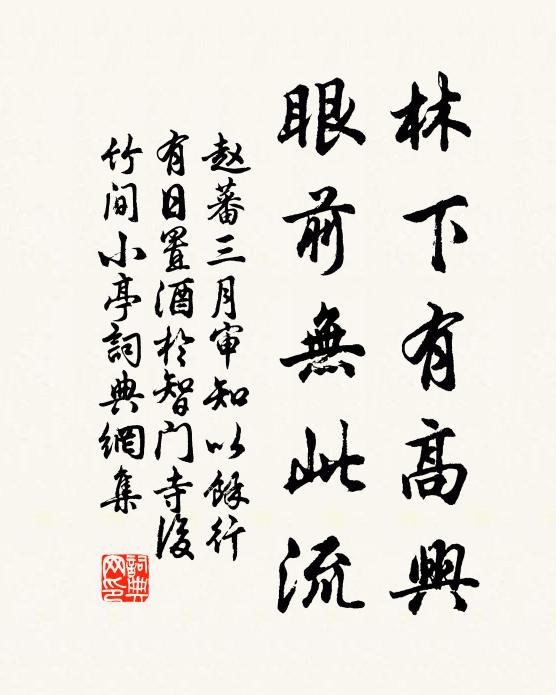 林下有高興
眼前無此流
赵蕃三月审知以餘行
有日置酒於智门寺後
竹间小亭詞典網集
詞典网印